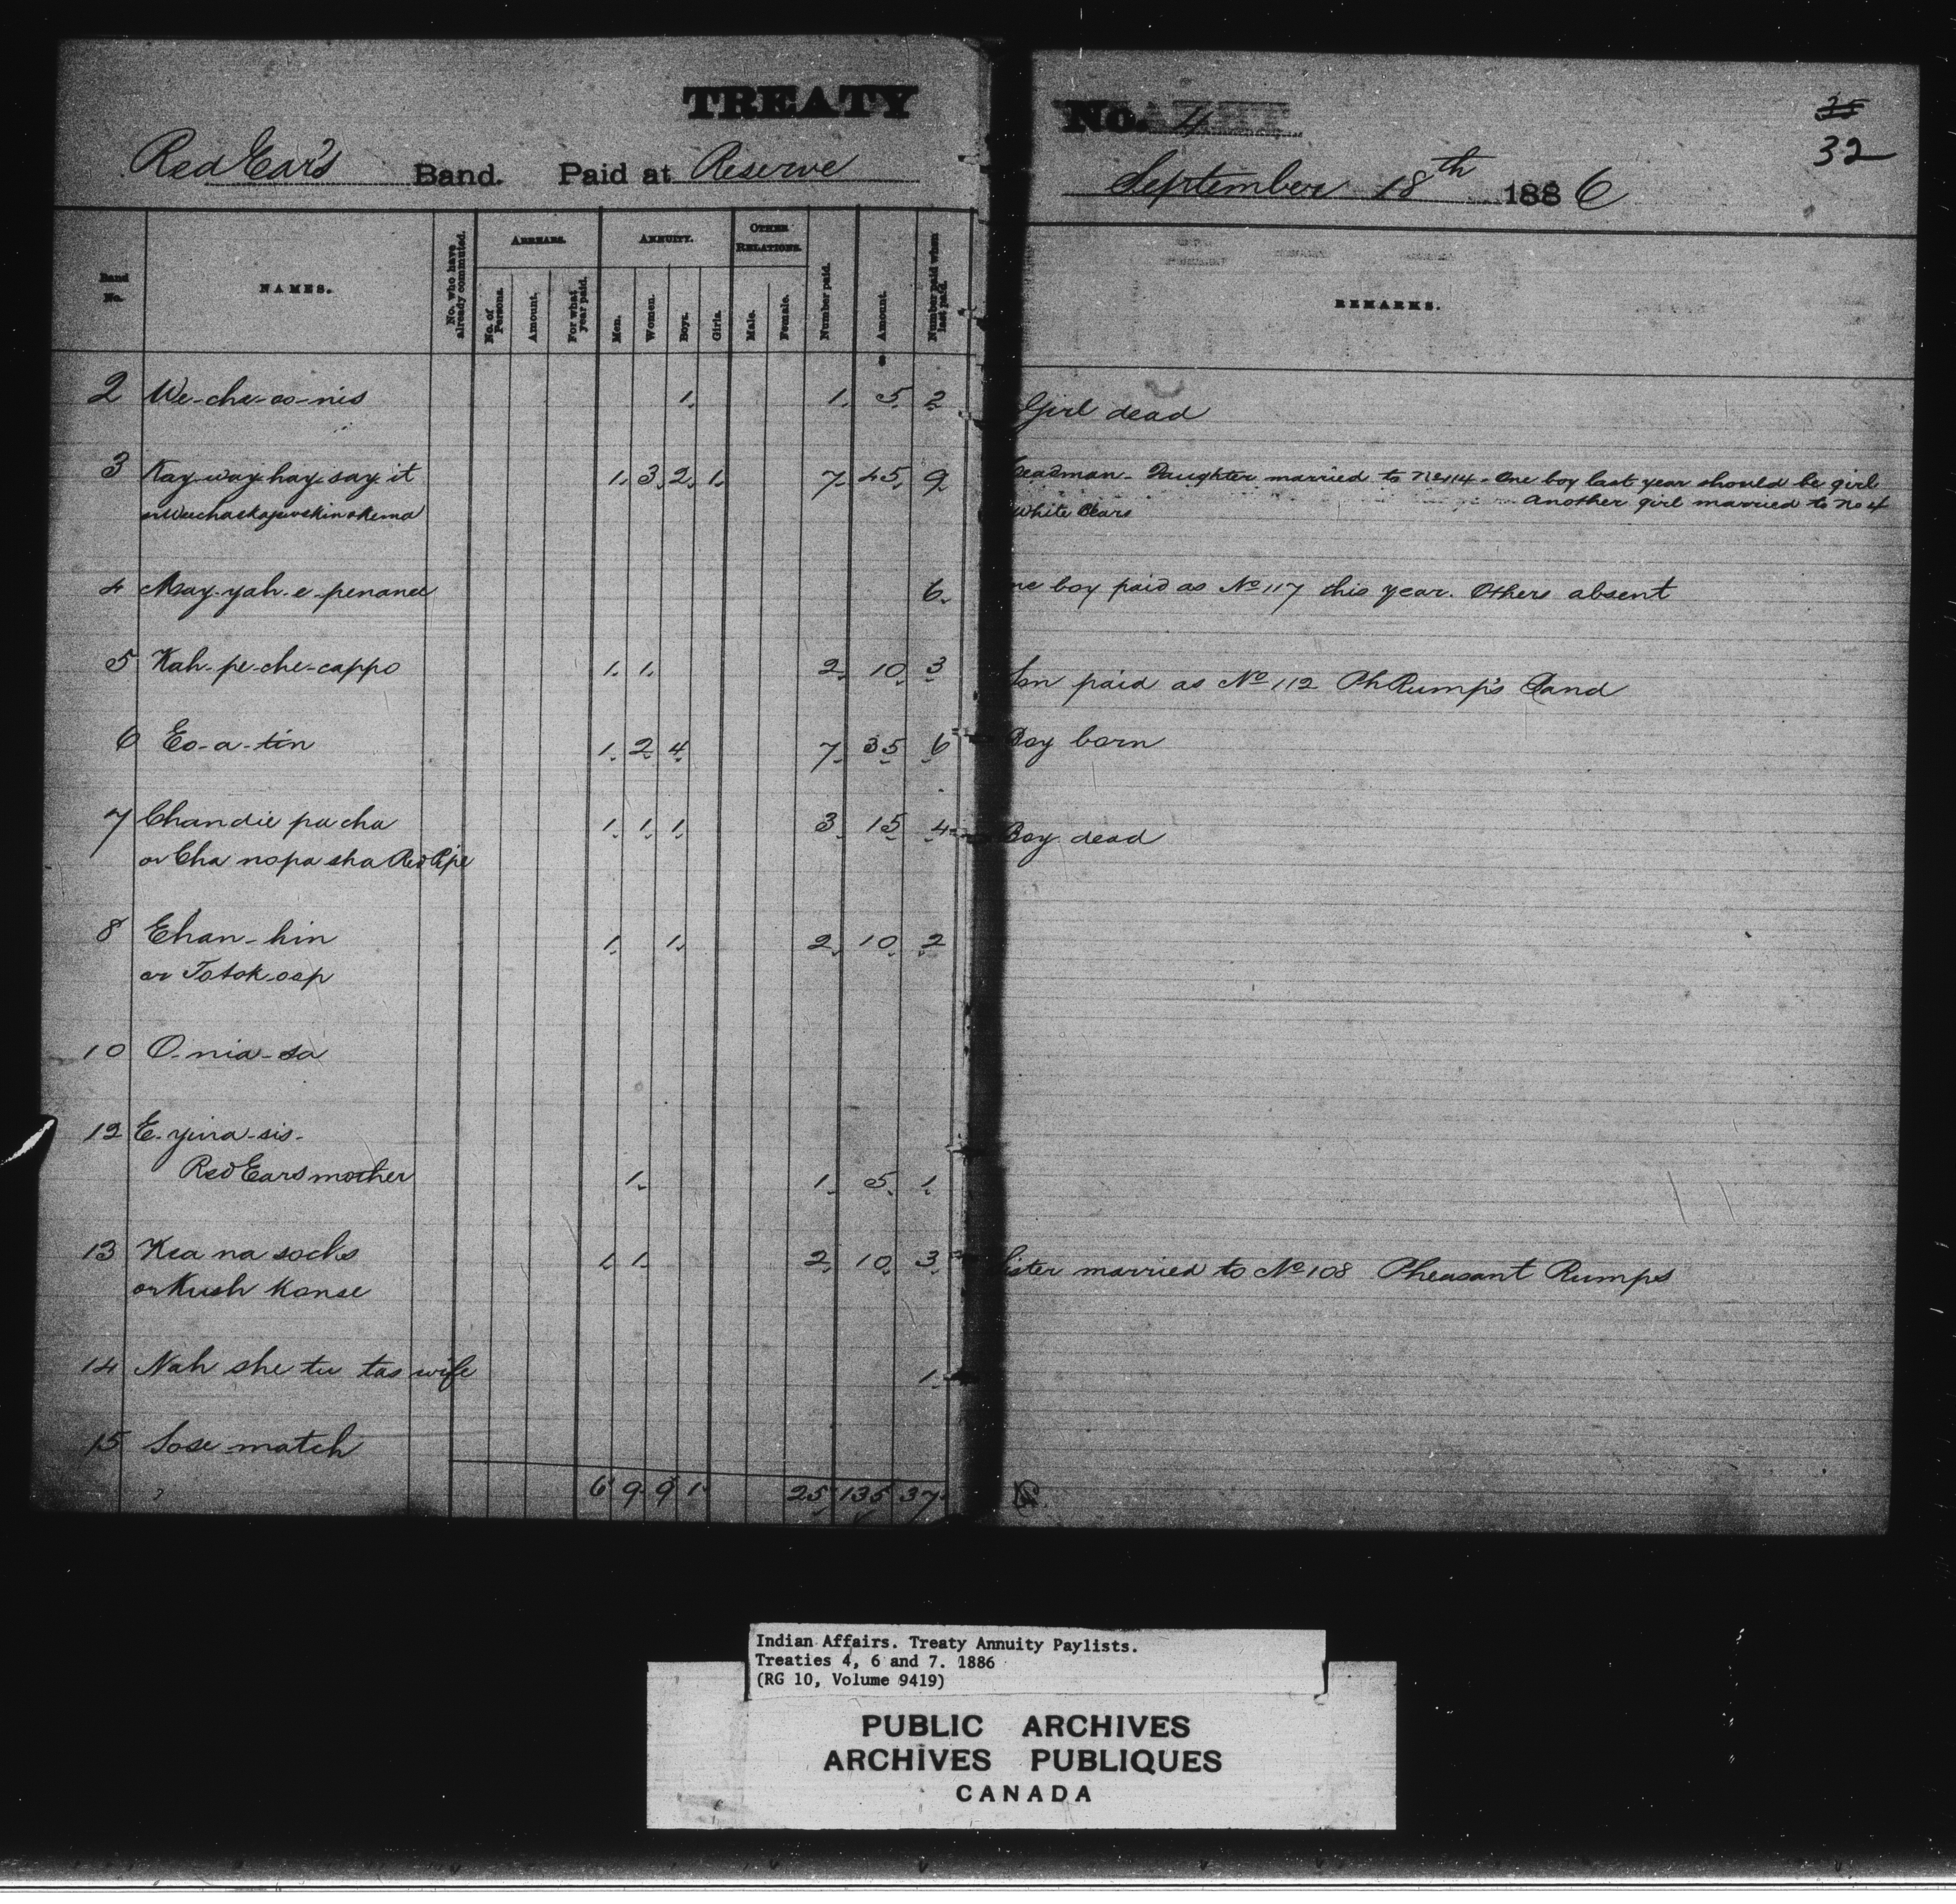 TREATY No. 4
35
32
Red Ear's Band. Paid at Reserve September 18th 1886
Band No. NAMES. No. who have already commuted. ARREARS. ANNUITY. OTHER RELATIONS. Number paid. Amount. Number paid when last paid. REMARKS.
No. of Persons. Amount. For what year paid. Men. Women. Boys. Girls. Male. Female.
2 We-che-co-nis 1. 1. 5. 2 Girl dead
3 Kay-way-hay-say-it 1. 3. 2. 1. 7. 45. 9 Headman - Daughter married to No 114 - One boy last year should be girl
White Bears Another girl married to No 4
4 May-yah-e-penanee 6. ne boy paid as No 117 this year. Others absent
5 Kah-pe-che-cappo 1. 1. 2. 10. 3 Son paid as No 112 Ph Rump's Band
6 Eo-a-tin 1. 2. 4. 7. 35. 6 Boy born
7 Chandie pa cha 1. 1. 1. 3. 15. 4 Boy dead
or Cha nopa sha Red Pipe
8 Ehan-hin 1. 1. 2. 10. 2
or Totok oap
10 O-nia-sa
12 E-yina-sis-
Red Ears mother 1. 1. 5. 1.
13 Kea na socks 1. 1. 2. 10. 3. Sister married to No 108 Pheasant Rumps
or Kush Kanse
14 Nah she tu tas wife 1.
15 Sose match
6 9 9 1. 25 135 37.
Indian Affairs. Treaty Annuity Paylists.
Treaties 4, 6 and 7. 1886
(RG 10, Volume 9419)
PUBLIC ARCHIVES
ARCHIVES PUBLIQUES
CANADA